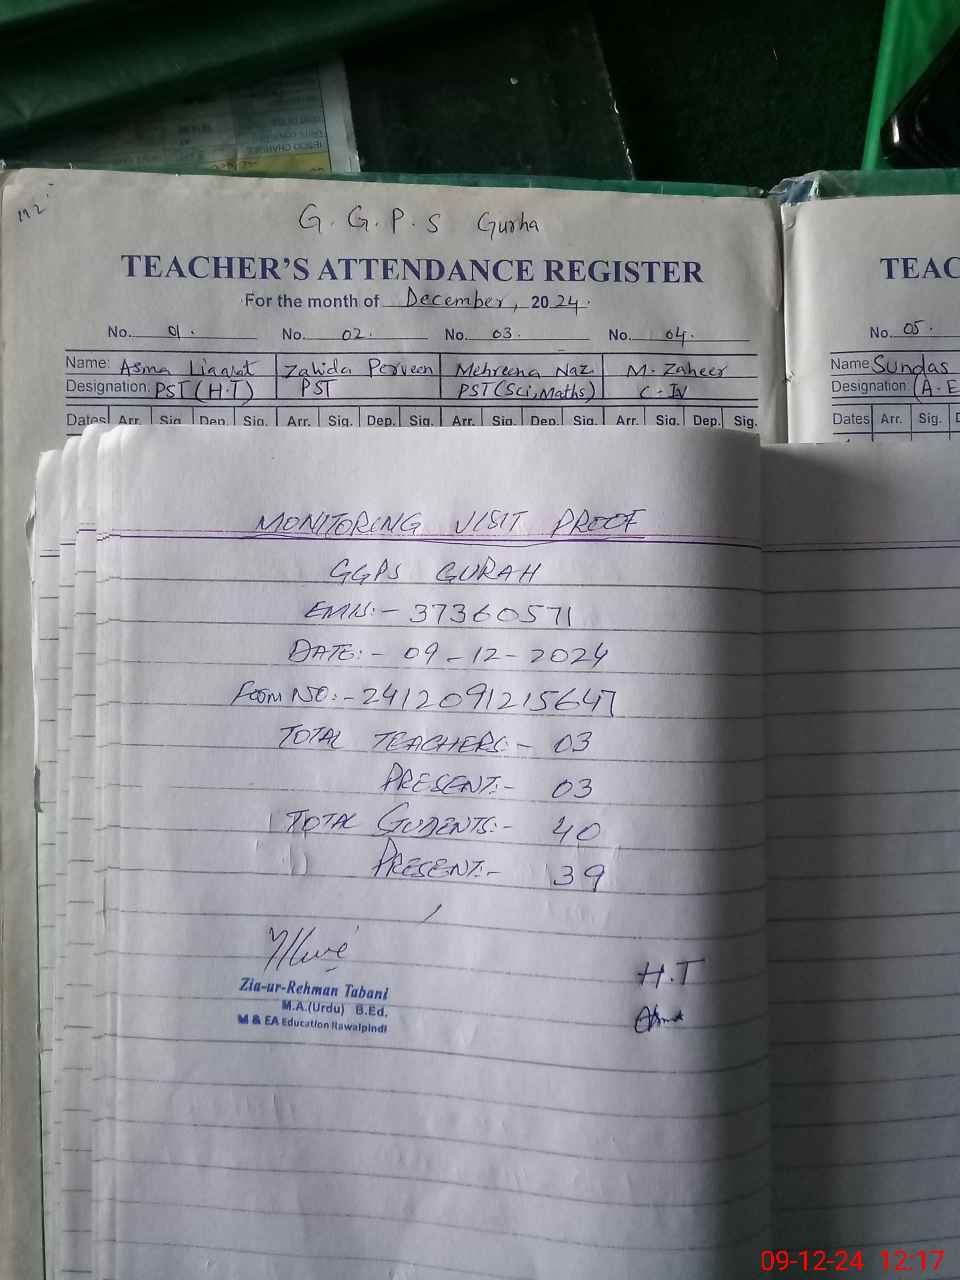 G.G.P.S Gurha
TEACHER'S ATTENDANCE REGISTER
For the month of December, 2024.
No. 01. No. 02. No. 03. No. 04.
Name: Asma Liaqat Zahida Perveen Mehreena Naz M. Zaheer
Designation: PST (H.T) PST PST (Sci, Maths) C-IV
Dates Arr. Sig. Dep. Sig. Arr. Sig. Dep. Sig. Arr. Sig. Dep. Sig. Arr. Sig. Dep. Sig.
TEAC
No. 05.
Name Sundas
Designation: (A.E
Dates Arr. Sig. D
MONITORING VISIT PROOF
GGPS GURAH
EMIS:- 37360571
DATE:- 09-12-2024
FORM NO:- 2412091215647
TOTAL TEACHERS:- 03
PRESENT:- 03
TOTAL STUDENTS:- 40
PRESENT:- 39
Zia-ur-Rehman Tabani
M.A.(Urdu) B.Ed.
M & EA Education Rawalpindi
H.T
Asma
09-12-24 12:17